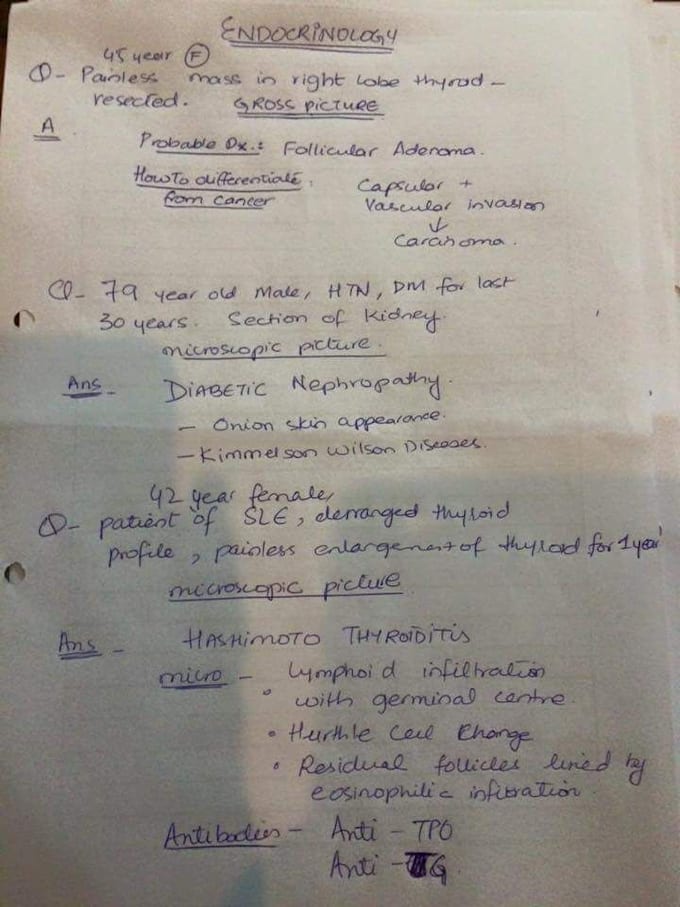 ENDOCRINOLOGY
45 year F
Q - Painless mass in right lobe thyroid -
resected. GROSS PICTURE
A
Probable Dx.: Follicular Adenoma.
How To differentiate from cancer
Capsular +
Vascular invasion
↓
Carcinoma.
Q - 79 year old Male, HTN, DM for last
30 years. Section of Kidney.
microscopic picture.
Ans - DIABETIC Nephropathy.
- Onion skin appearance.
- Kimmelson Wilson Diseases.
42 year female,
Q - patient of SLE, derranged thyroid
profile, painless enlargement of thyroid for 1 year
microscopic picture
Ans - HASHIMOTO THYROIDITIS
micro - Lymphoid infiltration
• with germinal centre.
• Hurthle Cell Change
• Residual follicles lined by
eosinophilic infitration.
Antibodies - Anti - TPO
Anti - TG